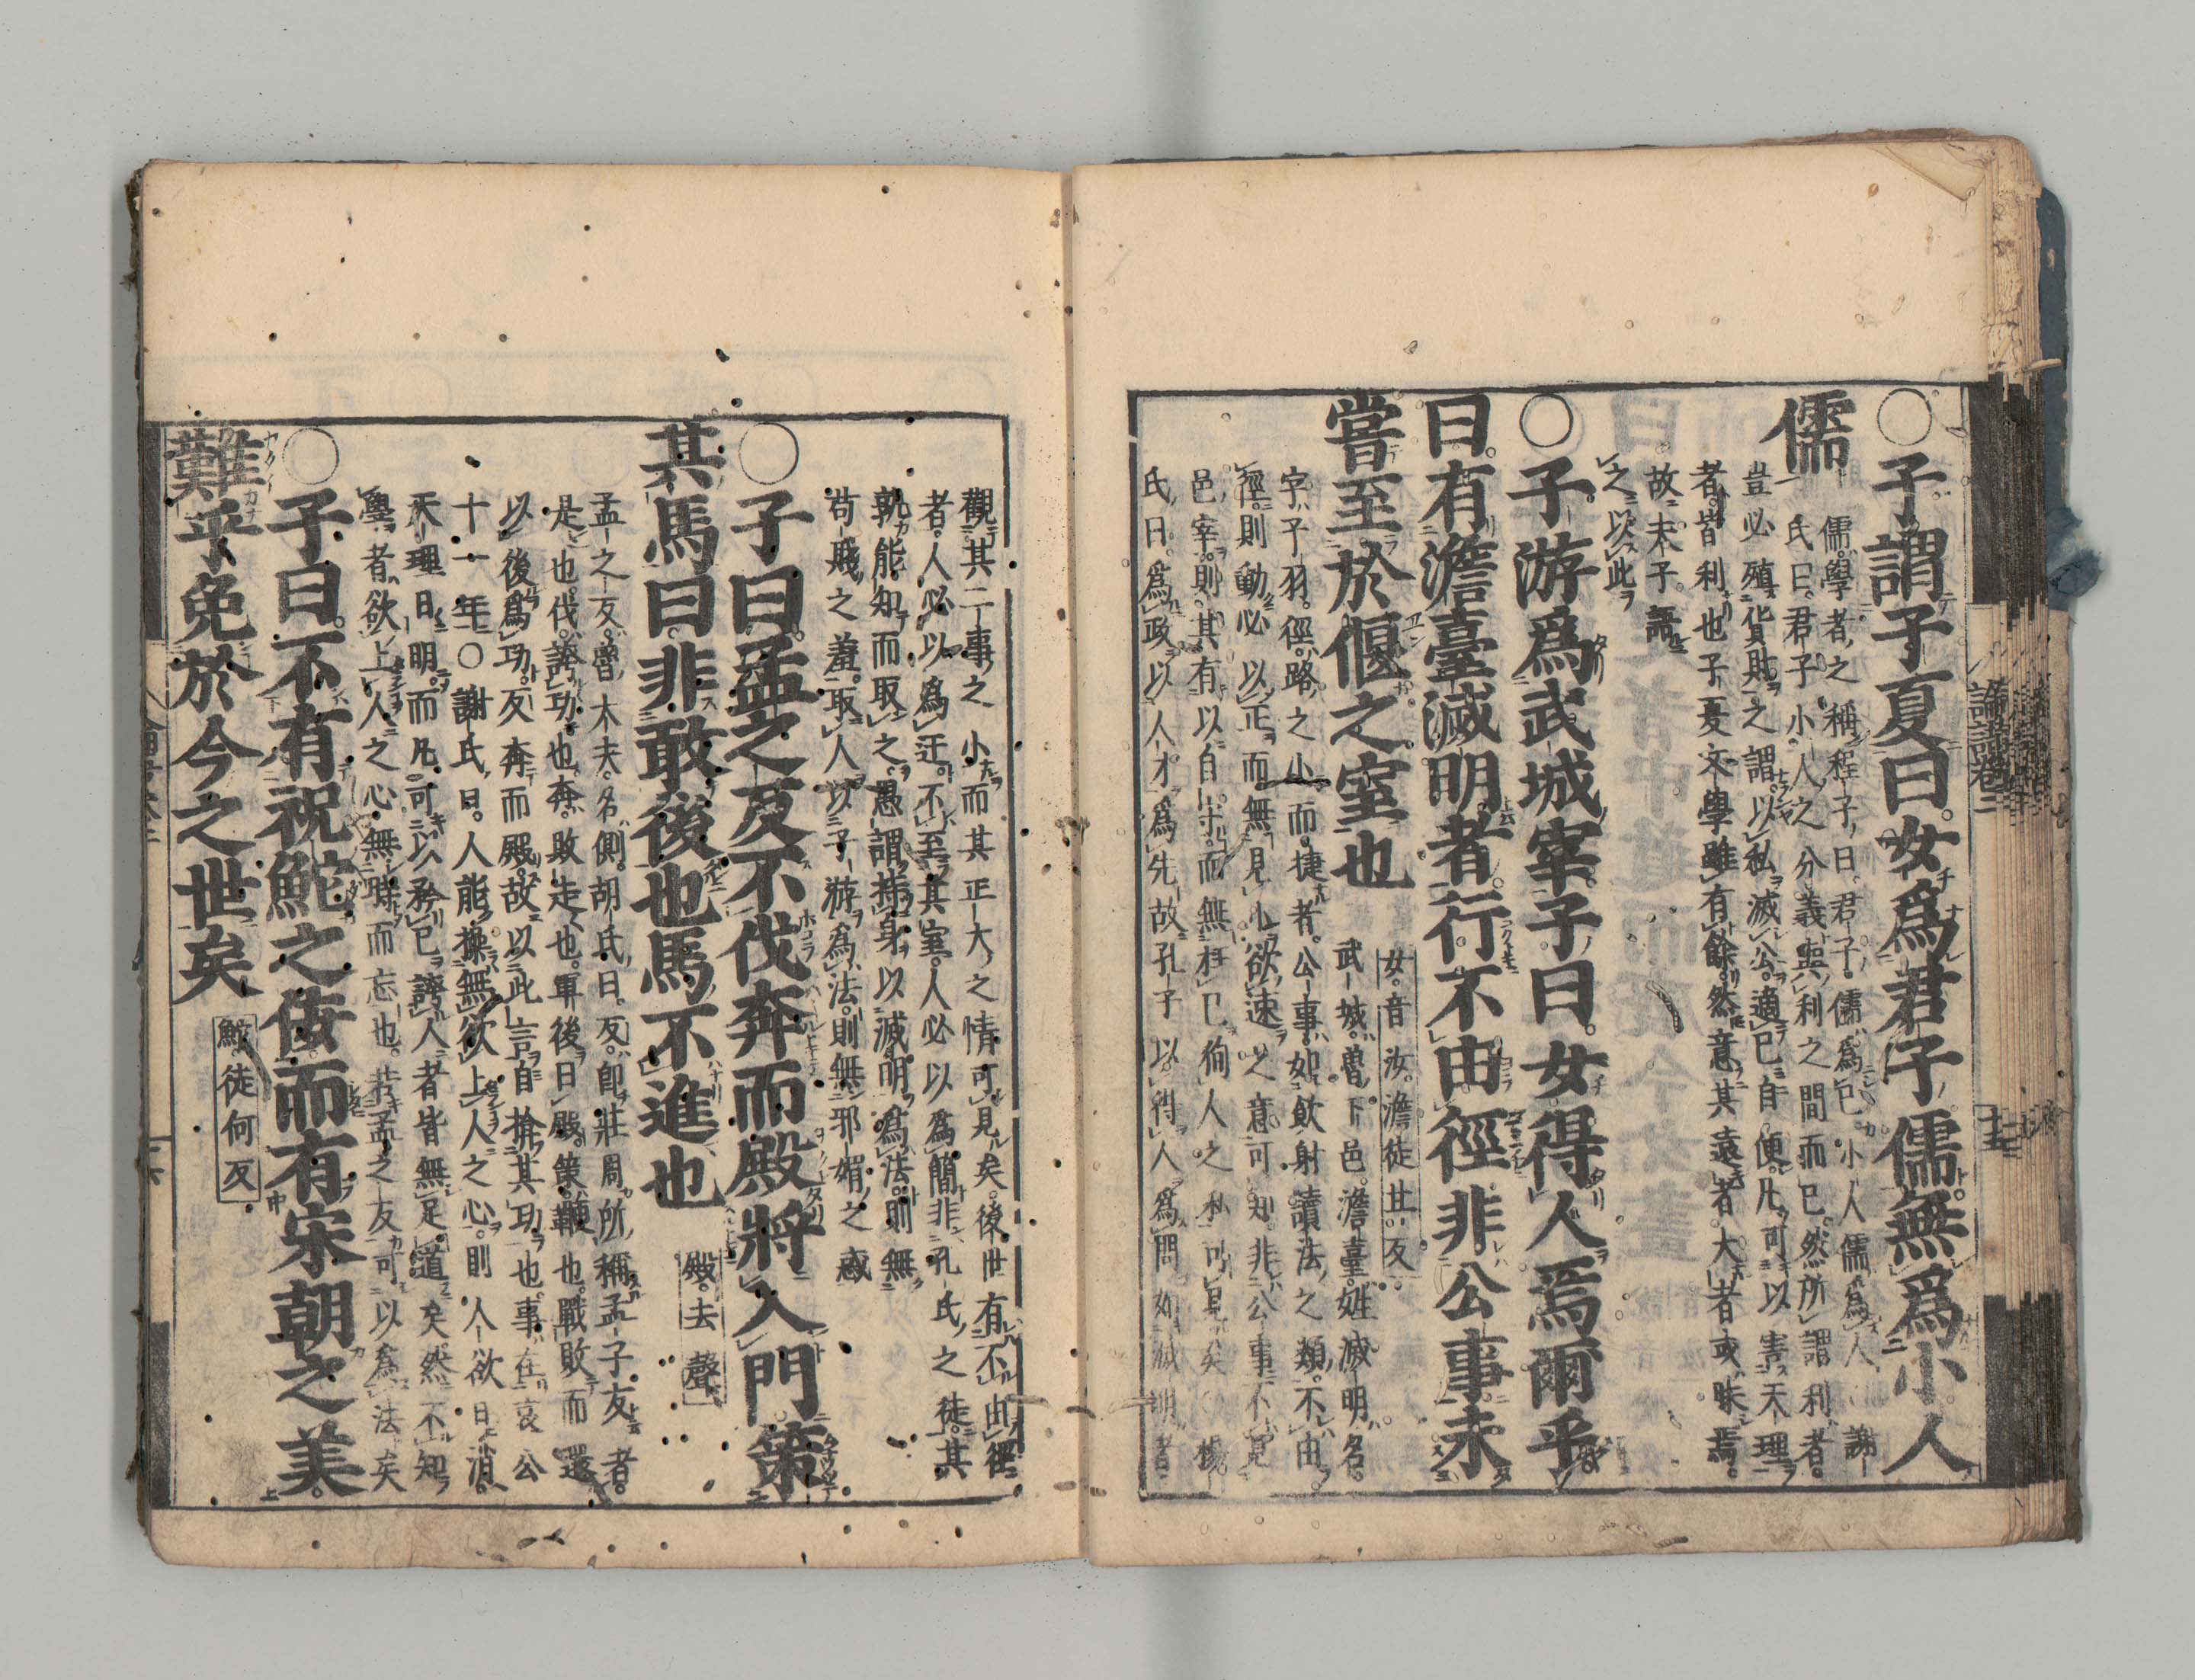 ○子謂子夏曰。女爲君子儒。無爲小人
儒
儒。學者之稱。程子曰。君子儒爲己。小人儒爲人。○謝
氏曰。君子小人之分。義與利之間而已。然所謂利者。
豈必殖貨財之謂。以私滅公。適己自便。凡可以害天理
者。皆利也。子夏文學雖有餘。然意其遠者大者或昧焉。
故夫子語
之以此
○子游爲武城宰。子曰。女得人焉爾乎
曰。有澹臺滅明者。行不由徑。非公事。未
嘗至於偃之室也
女。音汝。澹徒甘反。
武城。魯下邑。澹臺。姓滅明。名。
字子羽。徑。路之小而捷者。公事。如飲射讀法之類。不由
徑。則動必以正。而無見小欲速之意可知。非公事不見
邑宰。則其有以自守。而無枉己狥人之私可見矣○楊
氏曰。爲政以人才爲先。故孔子以得人爲問。如滅明者
論語卷三
十五
觀其二事之小。而其正大之情可見矣。後世有不由徑
者。人必以爲迂。不至其室。人必以爲簡。非孔氏之徒。其
孰能知而取之。愚謂持身以滅明爲法。則無
苟賤之羞。取人以子游爲法。則無邪媚之惑
○子曰。孟之反不伐。奔而殿。將入門。策
其馬曰。非敢後也。馬不進也
殿。去聲
孟之反。魯大夫。名側。胡氏曰。反。卽莊周所稱孟子反者。
是也。伐。誇功也。奔。敗走也。軍後曰殿。策。鞭也。戰敗而還
以後爲功。反奔而殿。故以此言自揜其功也。事在哀公
十一年○謝氏曰。人能操無欲上人之心。則人欲日消。
天理日明。而凡可以矜己誇人者皆無足道矣。然不知
學者。欲上人之心無時而忘也。若孟之反可以爲法矣
○子曰。不有祝鮀之佞。而有宋朝之美。
難乎免於今之世矣
鮀。徒何反。